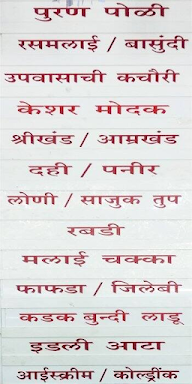 पुरण पोळी
रसमलाई / बासुंदी
उपवासाची कचौरी
केशर मोदक
श्रीखंड / आम्रखंड
दही / पनीर
लोणी / साजुक तुप
रबडी
मलाई चक्का
फाफडा / जिलेबी
कडक बुन्दी लाडू
इडली आटा
आईस्क्रीम / कोल्ड्रींक